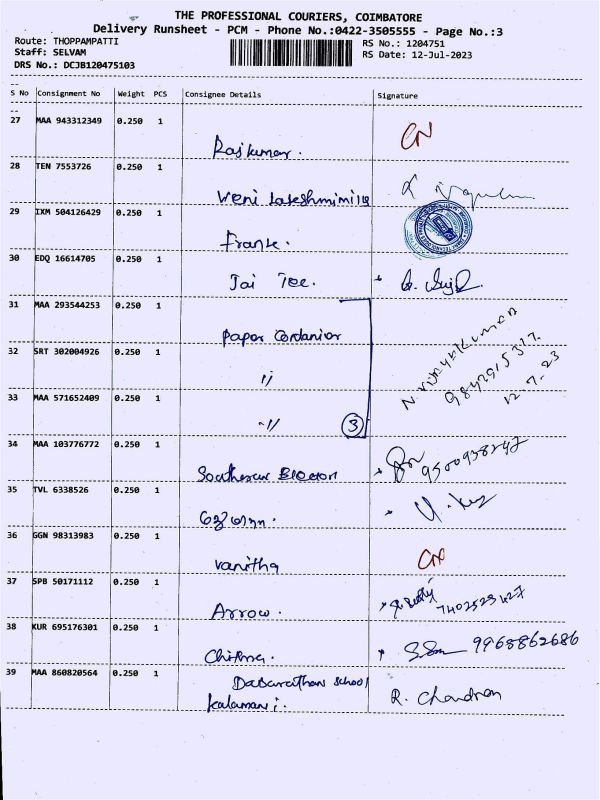 THE PROFESSIONAL COURIERS, COIMBATORE
Delivery Runsheet - PCM - Phone No.:0422-3505555 - Page No.:3
Route: THOPPAMPATTI RS No.: 1204751
Staff: SELVAM RS Date: 12-Jul-2023
DRS No.: DCJB120475103
S No Consignment No Weight PCS Consignee Details Signature
27 MAA 943312349 0.250 1
Rajkumar. CN
28 TEN 7553726 0.250 1
Veni
29 IXM 504126429 0.250 1
30 EDQ 16614705 0.250 1
Jai Tec.
31 MAA 293544253 0.250 1
Paper
N. Vijayakumar
32 SRT 302004926 0.250 1
〃
12-7-23
33 MAA 571652409 0.250 1
〃 3
34 MAA 103776772 0.250 1
35 TVL 6338526 0.250 1
36 GGN 98313983 0.250 1
Vanitha CN
37 SPB 50171112 0.250 1
Arrow. 7402523427
38 KUR 695176301 0.250 1
Chitra. 9968862686
39 MAA 860820564 0.250 1
School
R. Chandran